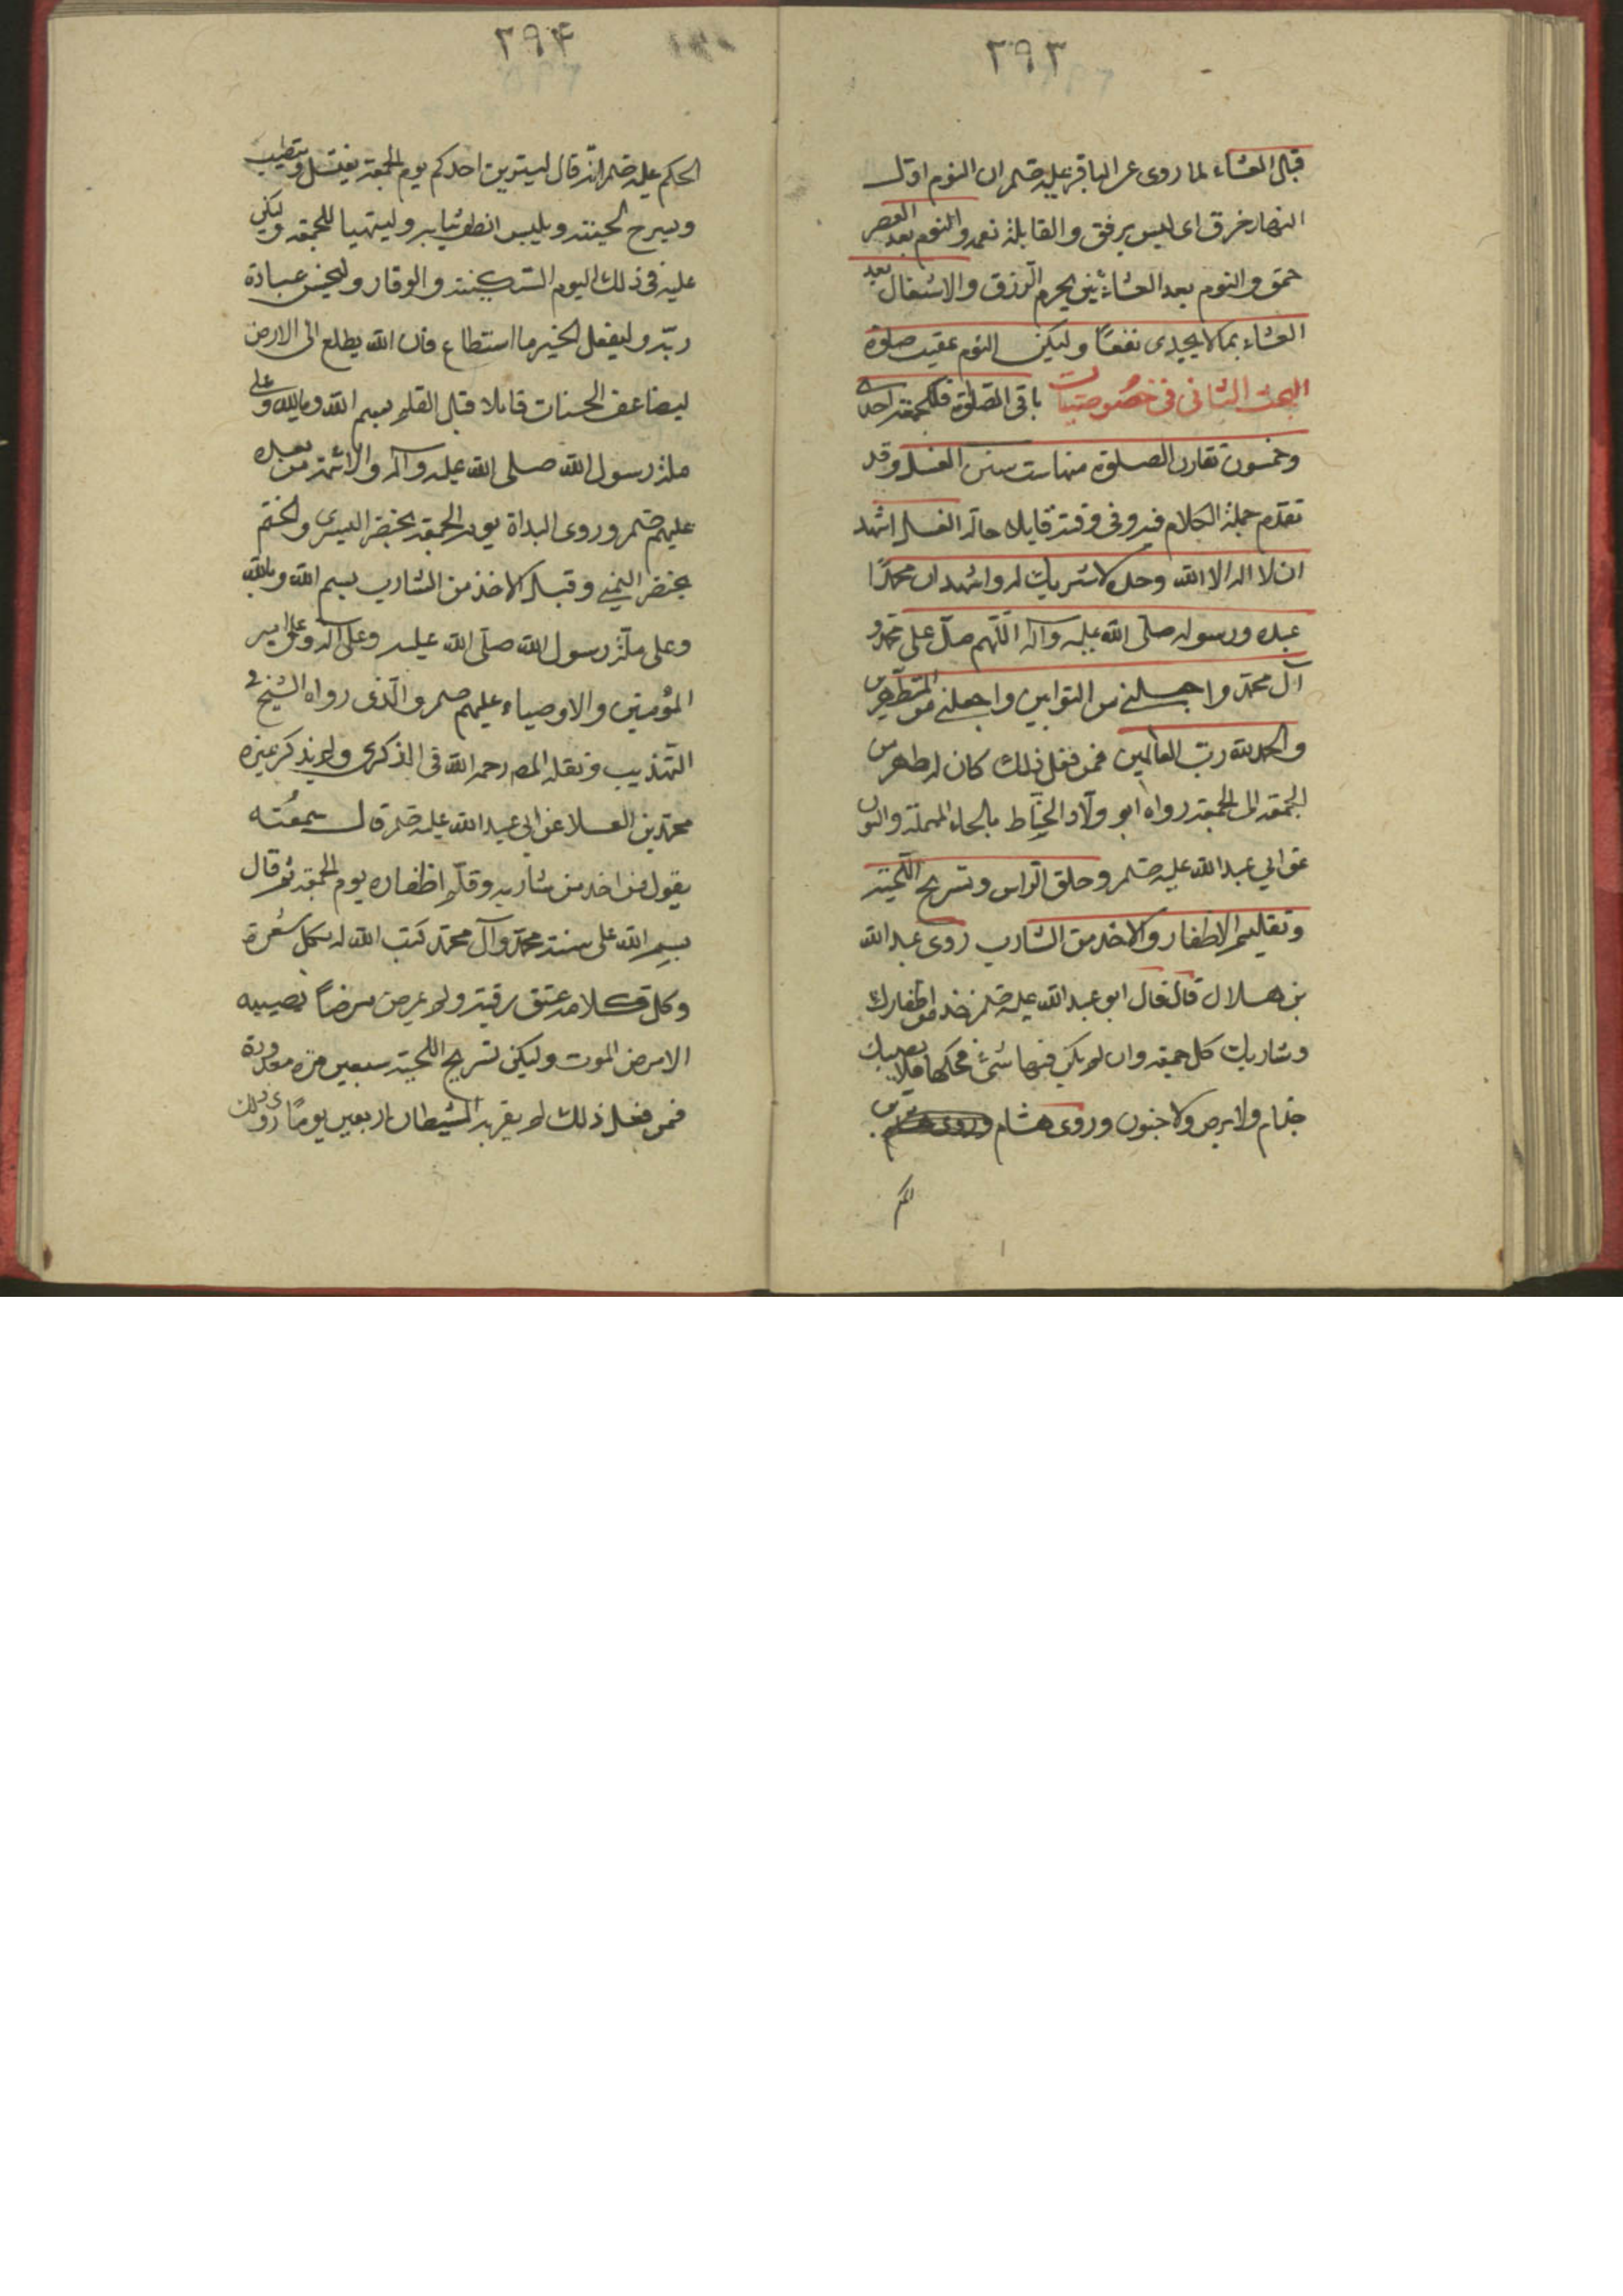 ٢٩٣
قبل العشاء لما روى عن الباقر عليه صلم ان النوم اول
النهار خرق اى ليس برفق والقايلة نعمة والنوم بعد العصر
حمق والنوم بعد العشائين يحرم الرزق والاشتغال بعد
العشاء بما لا يجدى نفعًا وليكن النوم عقيب صلوة
البحث الثانى فى خصوصيات باقى الصلوة فللجمعة احدى
وخمسون تقارن الصلوة منها ست سنن الغسل وقد
تقدم جملة الكلام فيه وفى وقته قايلا حالة الغسل اشهد
ان لا اله الا الله وحده لا شريك له واشهد ان محمدًا
عبده ورسوله صلى الله عليه وآله اللهم صل على محمد و
آل محمد واجعلنى من التوابين واجعلنى من المتطهرين
والحمد لله رب العالمين فمن فعل ذلك كان له طهر من
الجمعة الى الجمعة رواه ابو ولاد الحناط بالحاء المهملة والنون
عن ابي عبد الله عليه صلم وحلق الراس وتسريح اللحية
وتقليم الاظفار والاخذ من الشارب روى عبد الله
بن هلال قال قال ابو عبد الله عليه صلم خذ من اظفارك
وشاربك كل جمعة وان لم يكن فيها شئ فحكها فلا يصيبك
جذام ولا برص ولا جنون وروى هشام
٢٩٤
الحكم عليه صلم انه قال ليتزين احدكم يوم الجمعة يغتسل ويتطيب
ويسرح لحيته ويلبس انظف ثيابه وليتهيا للجمعة وليكن
عليه فى ذلك اليوم السكينة والوقار وليحسن عبادة
ربه وليفعل الخير ما استطاع فان الله يطلع الى الارض
ليضاعف الحسنات قايلا قبل القلم بسم الله وبالله وعلى
ملة رسول الله صلى الله عليه وآله والائمة من بعده
عليهم صلم وروى البداة يوم الجمعة بخنصر اليسرى والختم
بخنصر اليمنى وقبل الاخذ من الشارب بسم الله وبالله
وعلى ملة رسول الله صلى الله عليه وعلى آله وعلى امير
المؤمنين والاوصياء عليهم صلم والذى رواه الشيخ فى
التهذيب ونقله المص رحمه الله فى الذكرى ولم يذكر غيره
محمد بن العلا عن ابي عبد الله عليه صلم قال سمعته
يقول من اخذ من شاربه وقلم اظفاره يوم الجمعة ثم قال
بسم الله على سنة محمد وآل محمد كتب الله له بكل شعرة
وكل قلامة عتق رقبة ولم يمرض مرضًا يصيبه
الا مرض الموت وليكن تسريح اللحية سبعين مرة معدودة
فمن فعل ذلك لم يقربه الشيطان اربعين يومًا روى ذلك